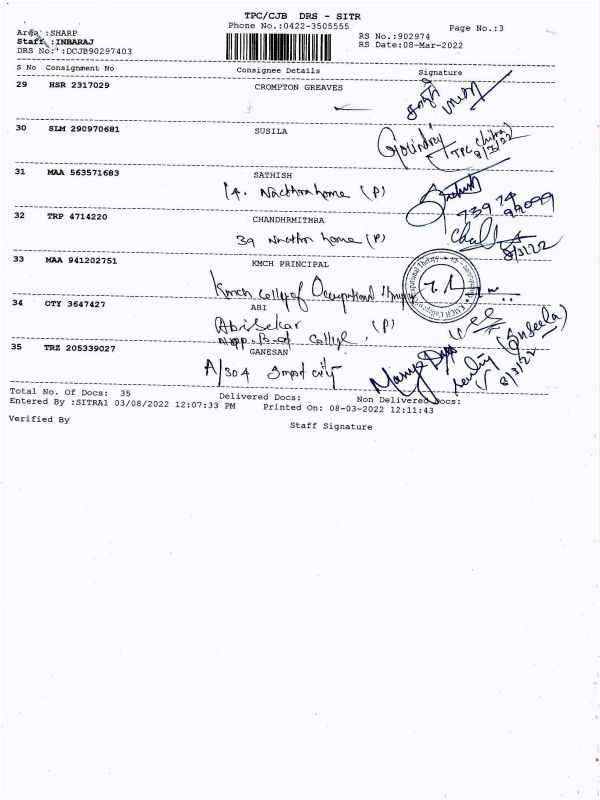 TPC/CJB DRS - SITR
Phone No.:0422-3505555
Page No.:3
Area :SHARP
RS No.:902974
Staff :INBARAJ
RS Date:08-Mar-2022
DRS No:*:DCJB90297403
S No Consignment No Consignee Details Signature
29 HSR 2317029 CROMPTON GREAVES
30 SLM 290970681 SUSILA
Govindraj
TPC
8/3/22
31 MAA 563571683 SATHISH
14. home (P)
73974
99099
32 TRP 4714220 CHANDHRMITHRA
39 home (P)
8/3/22
33 MAA 941202751 KMCH PRINCIPAL
Kmch college of Occupational therapy
34 OTY 3647427 ABI
Abisekar (P)
opp. B.ed College.
35 TRZ 205339027 GANESAN
A/304 city
8/3/22
Total No. Of Docs: 35 Delivered Docs: Non Delivered Docs:
Entered By :SITRA1 03/08/2022 12:07:33 PM Printed On: 08-03-2022 12:11:43
Verified By
Staff Signature